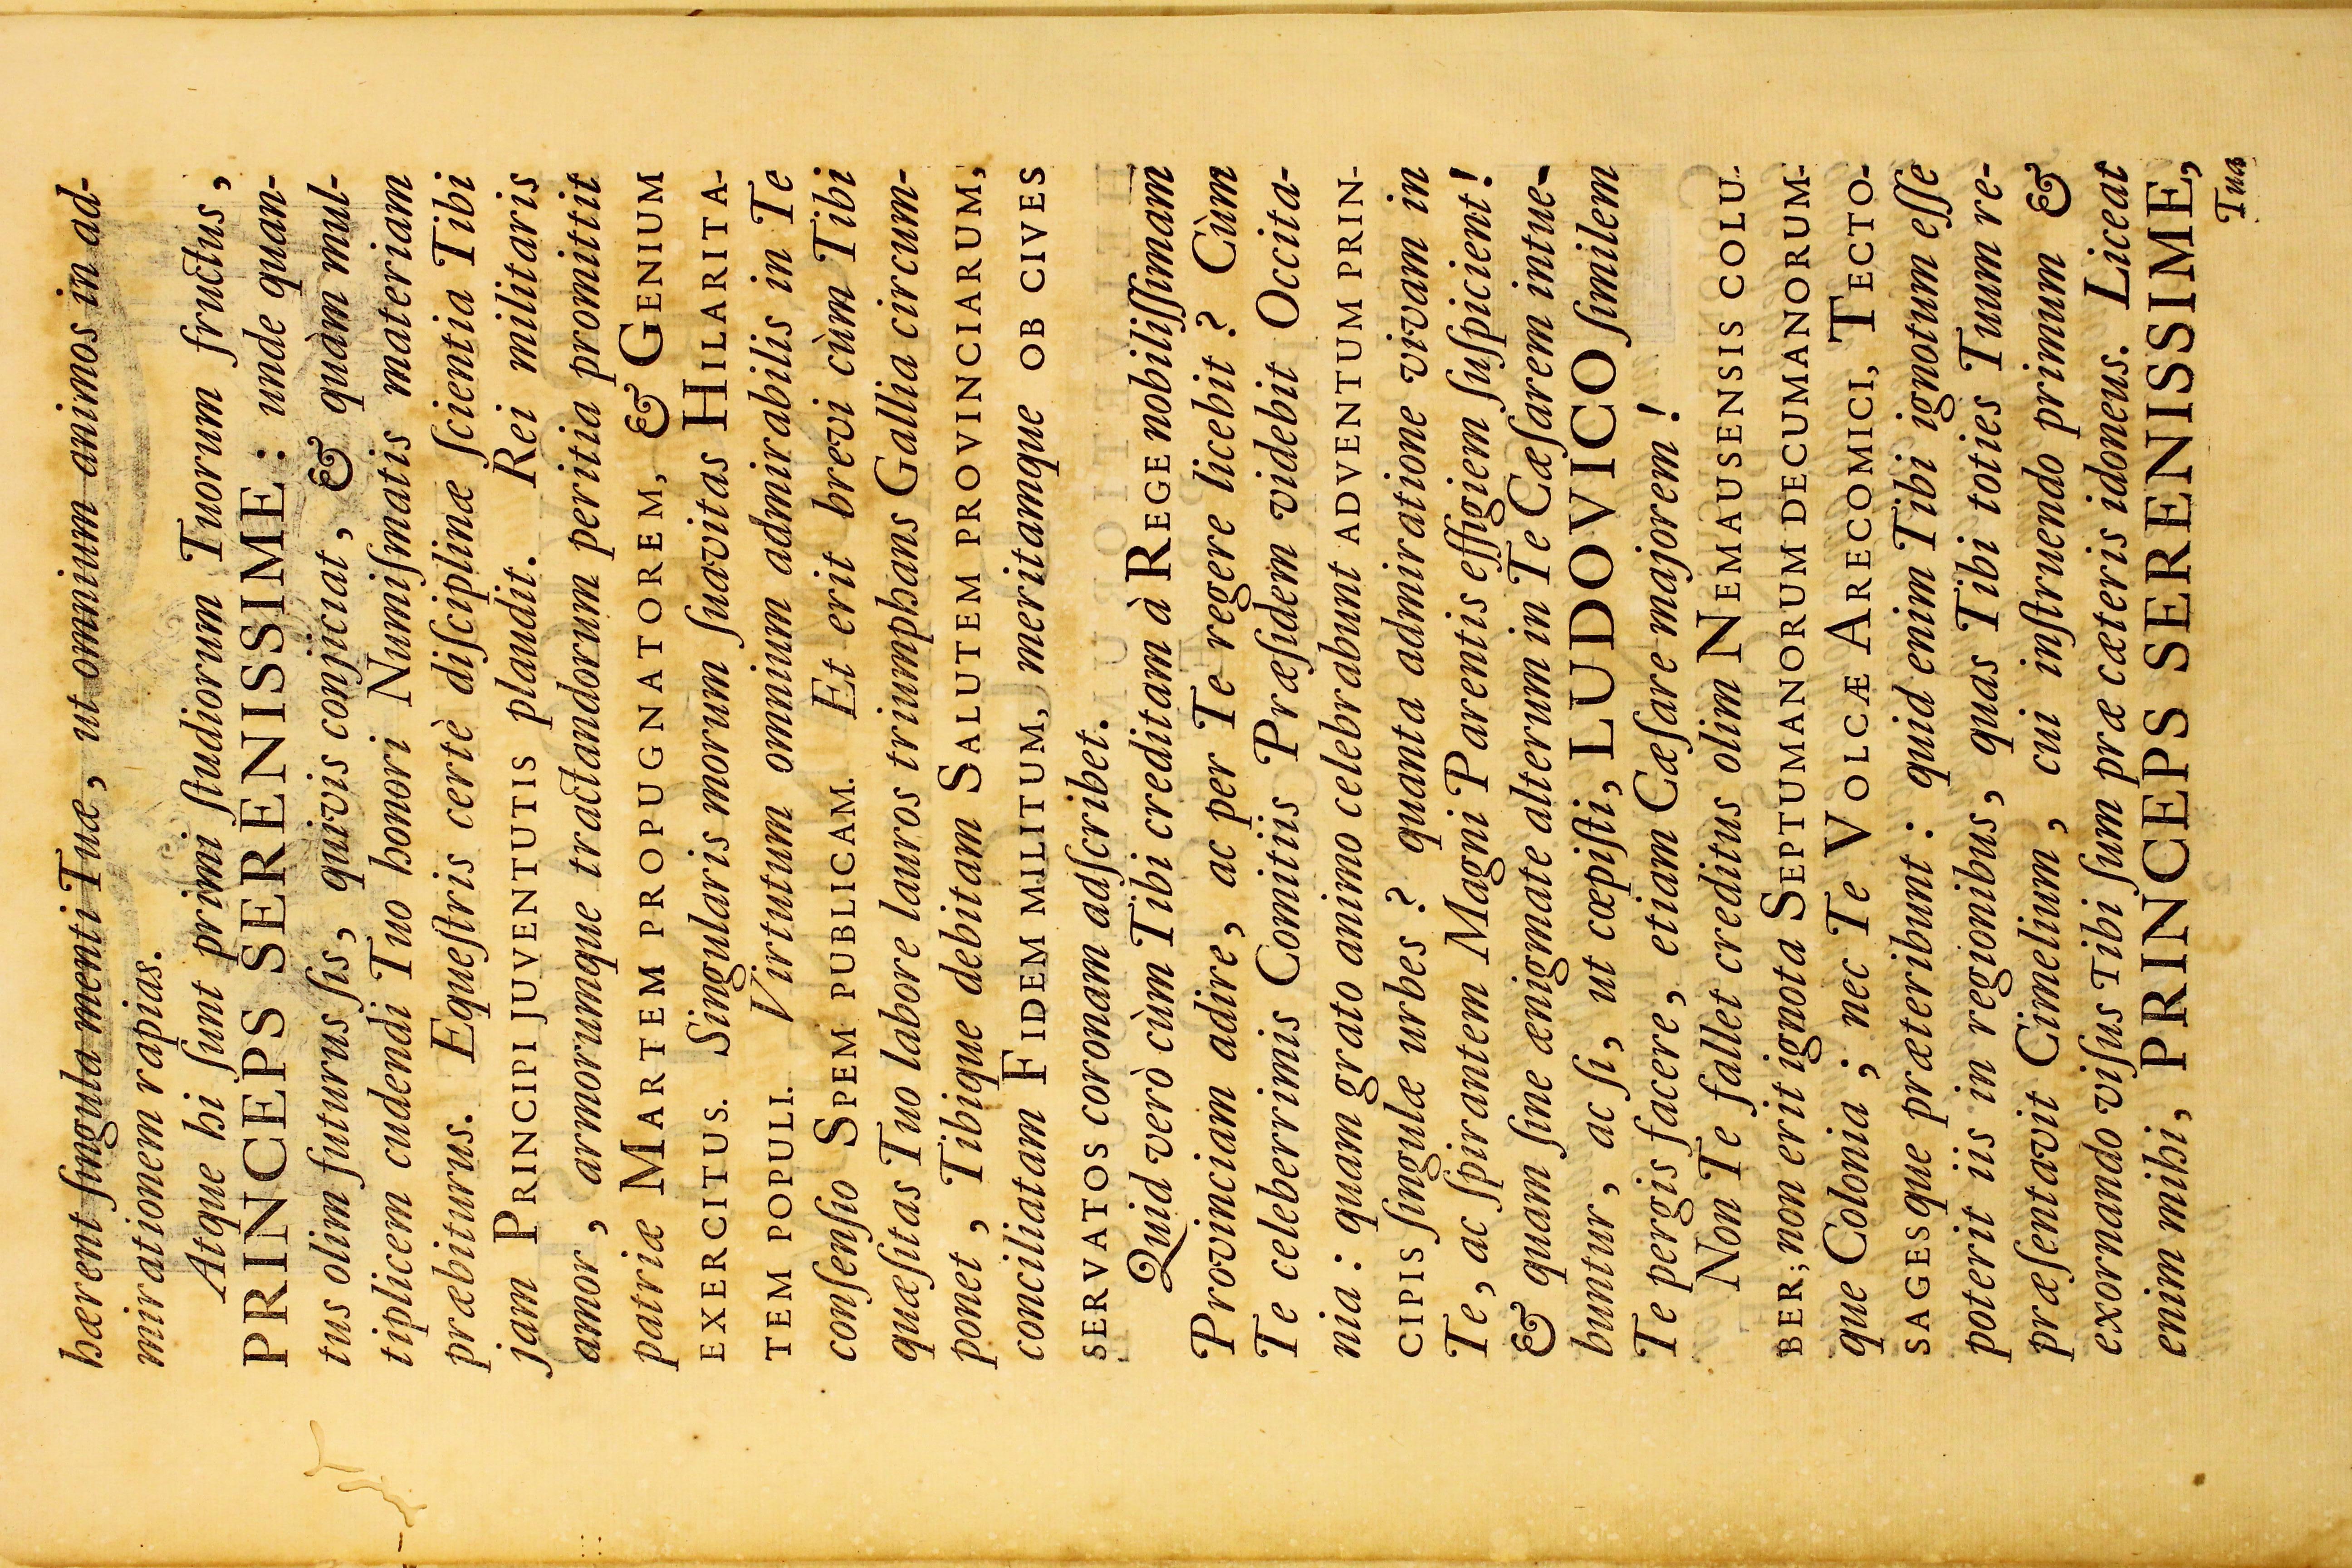 hærent ſingula menti Tuæ, ut omnium animos in ad-
mirationem rapias.
Atque hi ſunt primi ſtudiorum Tuorum fructus,
PRINCEPS SERENISSIME: unde quan-
tus olim futurus ſis, quivis conjiciat, & quàm mul-
tiplicem cudendi Tuo honori Numiſmatis materiam
præbiturus. Equeſtris certè diſciplinæ ſcientia Tibi
jam PRINCIPI JUVENTUTIS plaudit. Rei militaris
amor, armorumque tractandorum peritia promittit
patriæ MARTEM PROPUGNATOREM, & GENIUM
EXERCITUS. Singularis morum ſuavitas HILARITA-
TEM POPULI. Virtutum omnium admirabilis in Te
conſenſio SPEM PUBLICAM. Et erit brevi cùm Tibi
quæſitas Tuo labore lauros triumphans Gallia circum-
ponet, Tibique debitam SALUTEM PROVINCIARUM,
conciliatam FIDEM MILITUM, meritamque OB CIVES
SERVATOS coronam adſcribet.
Quid verò cùm Tibi creditam à REGE nobiliſſimam
Provinciam adire, ac per Te regere licebit? Cùm
Te celeberrimis Comitiis Præſidem videbit Occita-
nia: quam grato animo celebrabunt ADVENTUM PRIN-
CIPIS ſingulæ urbes? quanta admiratione vivam in
Te, ac ſpirantem Magni Parentis effigiem ſuſpicient!
& quam ſine ænigmate alterum in Te Cæſarem intue-
buntur, ac ſi, ut cœpiſti, LUDOVICO ſimilem
Te pergis facere, etiam Cæſare majorem!
Non Te fallet creditus olim NEMAUSENSIS COLU-
BER; non erit ignota SEPTUMANORUM DECUMANORUM-
que Colonia; nec Te VOLCÆ ARECOMICI, TECTO-
SAGESque præteribunt: quid enim Tibi ignotum eſſe
poterit iis in regionibus, quas Tibi toties Tuum re-
præſentavit Cimelium, cui inſtruendo primum &
exornando viſus Tibi ſum præ cæteris idoneus. Liceat
enim mihi, PRINCEPS SERENISSIME,
Tuas